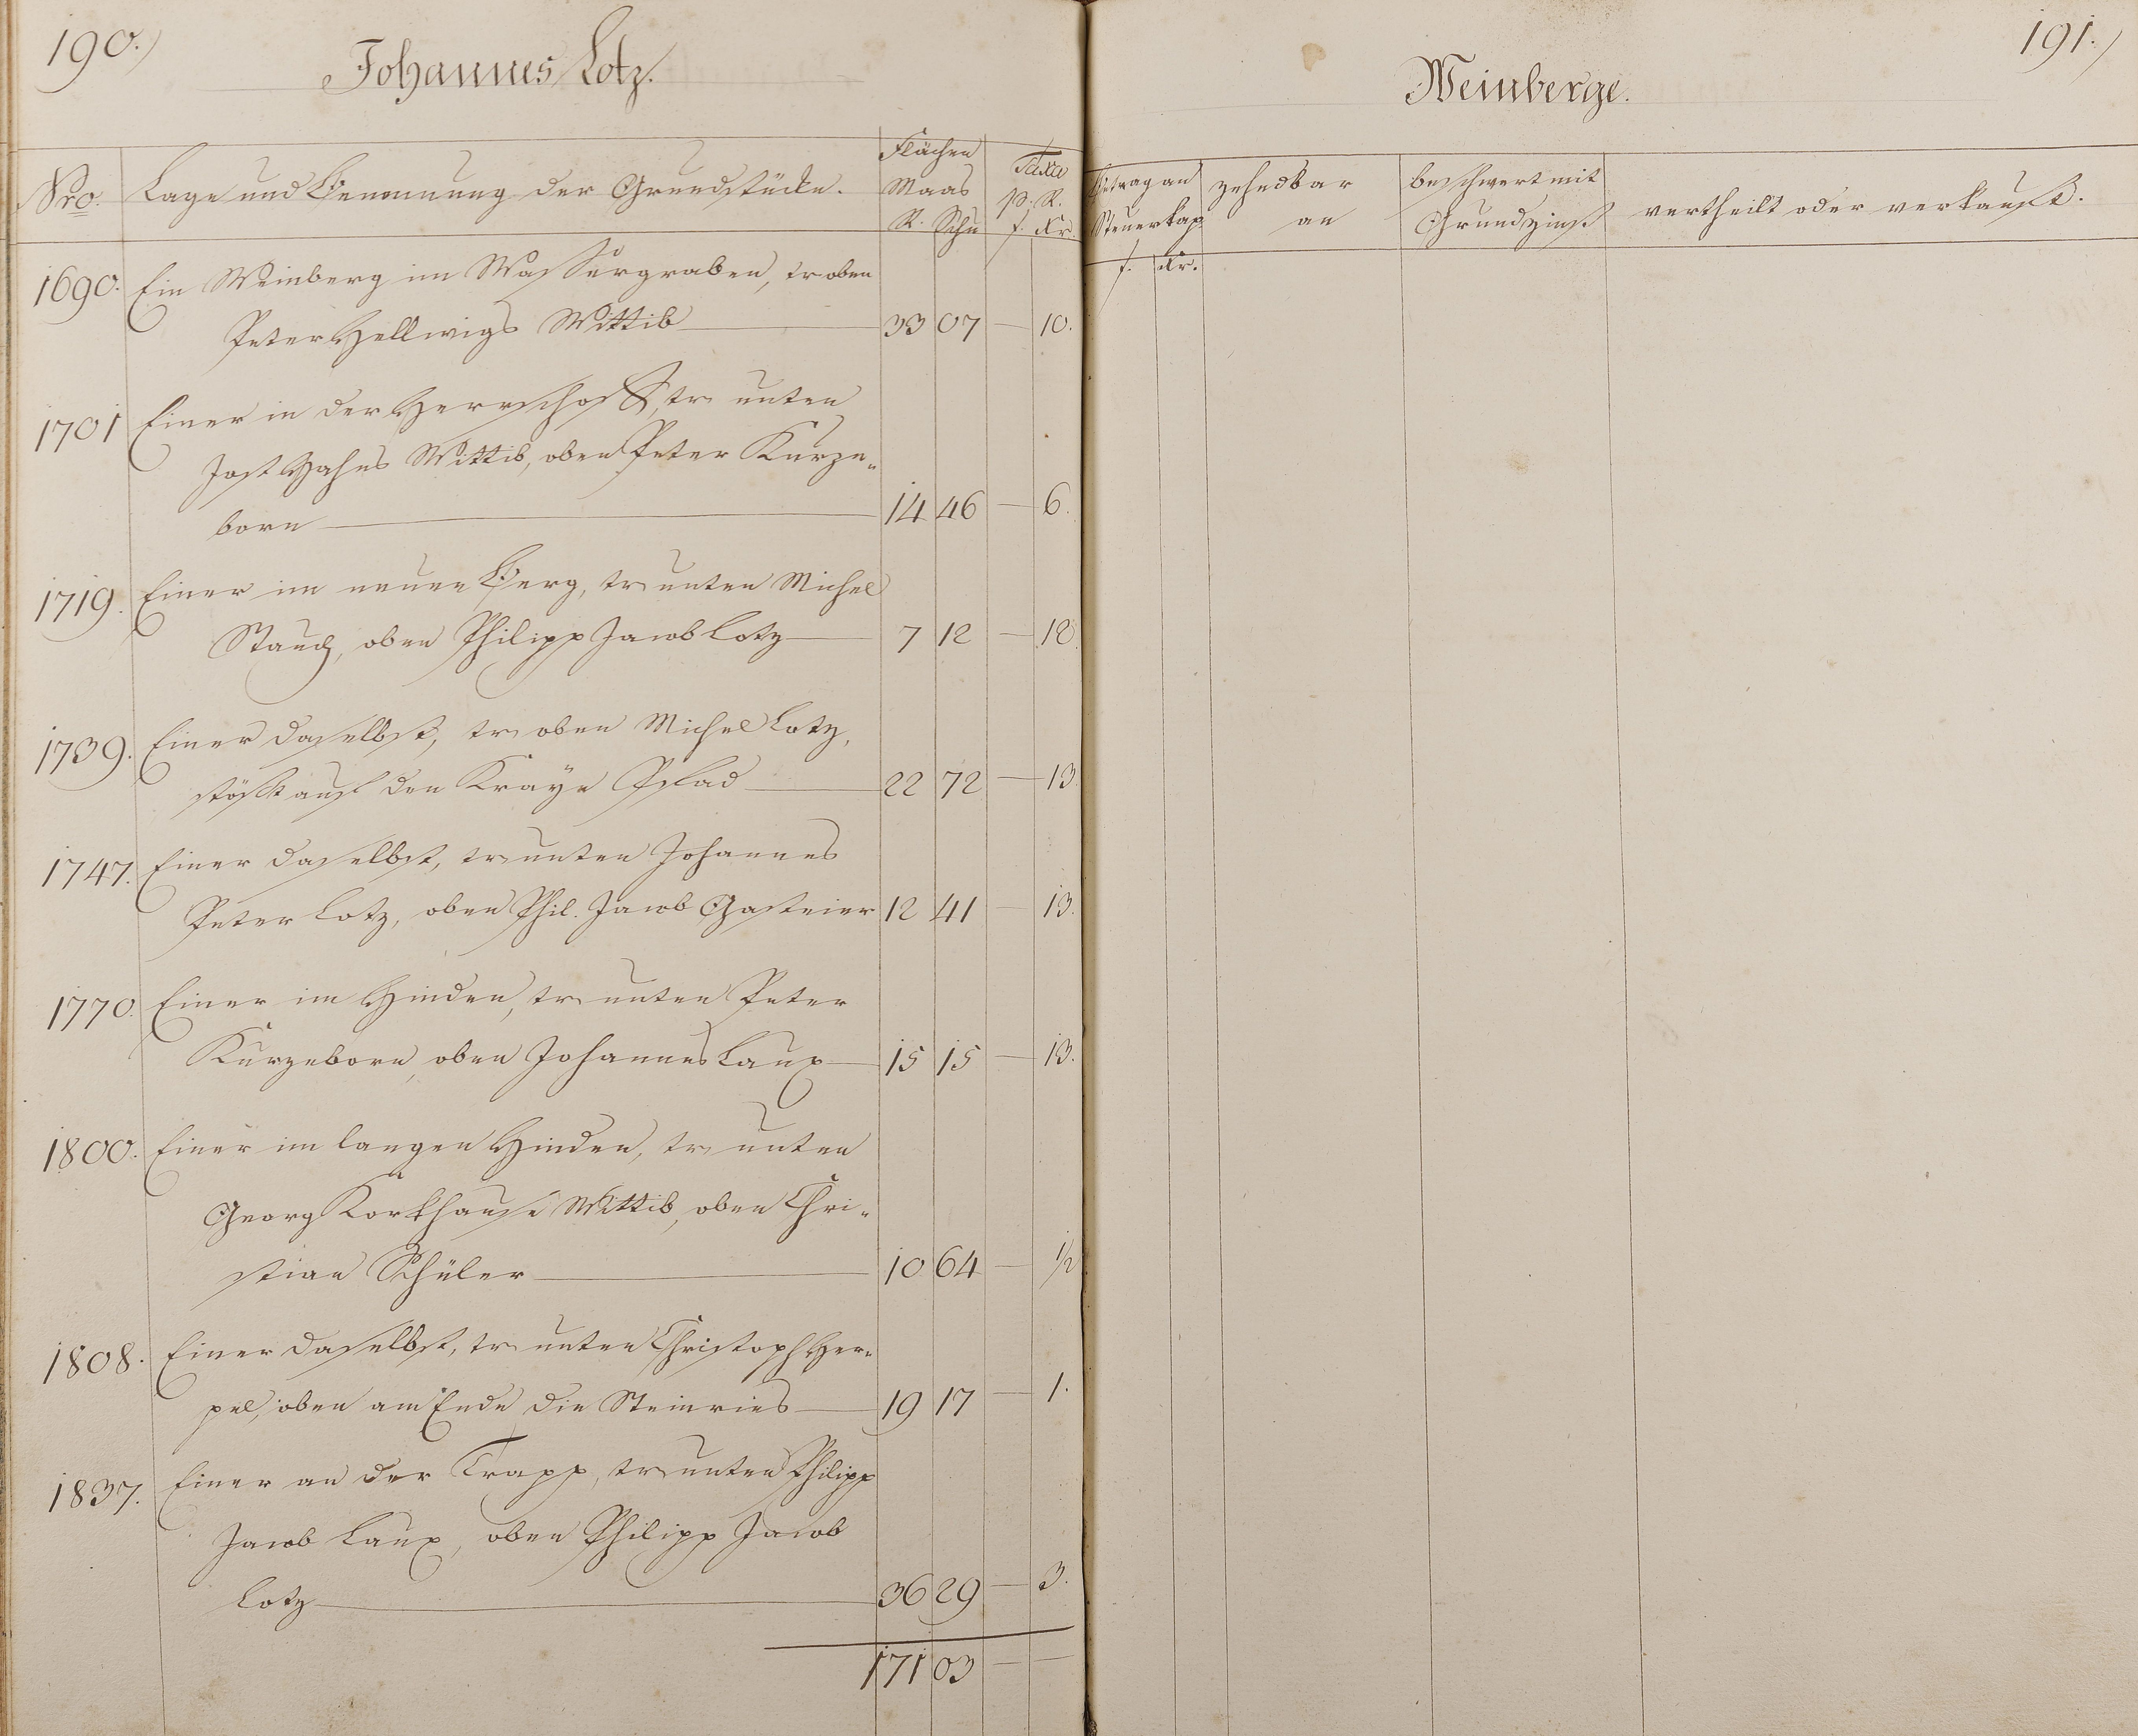 190.
Johannes Lotz.
Nro.
Lage und Benennung der Grundstücke.
Flächen
Maas
R. Schu
Taxa
p. R.
f. Kr.
1690. Ein Weinberg im Wassergraben, tr oben
Peter Hellwigs Wittib 33 07 — 10.
1701 Einer in der Herrschaft, tr unten
Jost Hahns Wittib, oben Peter Kurze-
born 14 46 — 6.
1719. Einer im neuen Berg, tr unten Michel
Stauch, oben Philipp Jacob Lotz 7 12 — 12.
1739. Einer daselbst, tr oben Michel Lotz,
stößt auf den Kraÿe Pfad 22 72 — 13.
1747. Einer daselbst, tr unten Johannes
Peter Lotz, oben Phil. Jacob Gasteier 12 41 — 13.
1770. Einer im Hinden, tr unten Peter
Kurzeborn, oben Johannes Laux 15 15 — 13.
1800. Einer im langen Hinden, tr unten
Georg Korkhause Wittib, oben Chri-
stian Schüler 10 64 — 1/2
1808. Einer daselbst, tr unten Christoph Her-
pel, oben am Ende die Steinries 19 17 — 1.
1837. Einer an der Trapp, tr unten Philipp
Jacob Laux, oben Philipp Jacob
Lotz 36 29 — 3.
171 03 — —
191.
Weinberge.
Betrag an
Steuerkap.
f. Kr.
zehndbar
an
beschwert mit
Grundzinß
vertheilt oder verkauft.